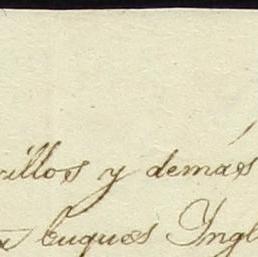 illos y demás
Buques Ingl